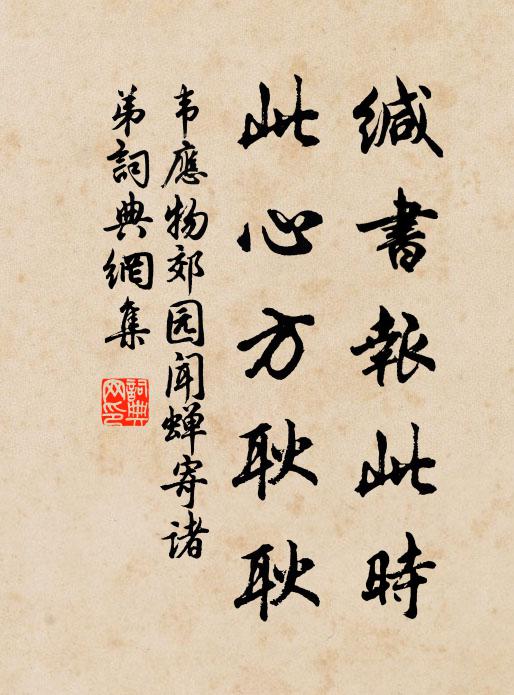 缄書報此時
此心方耿耿
韦應物郊园闻蝉寄诸
弟詞典網集
詞典网印